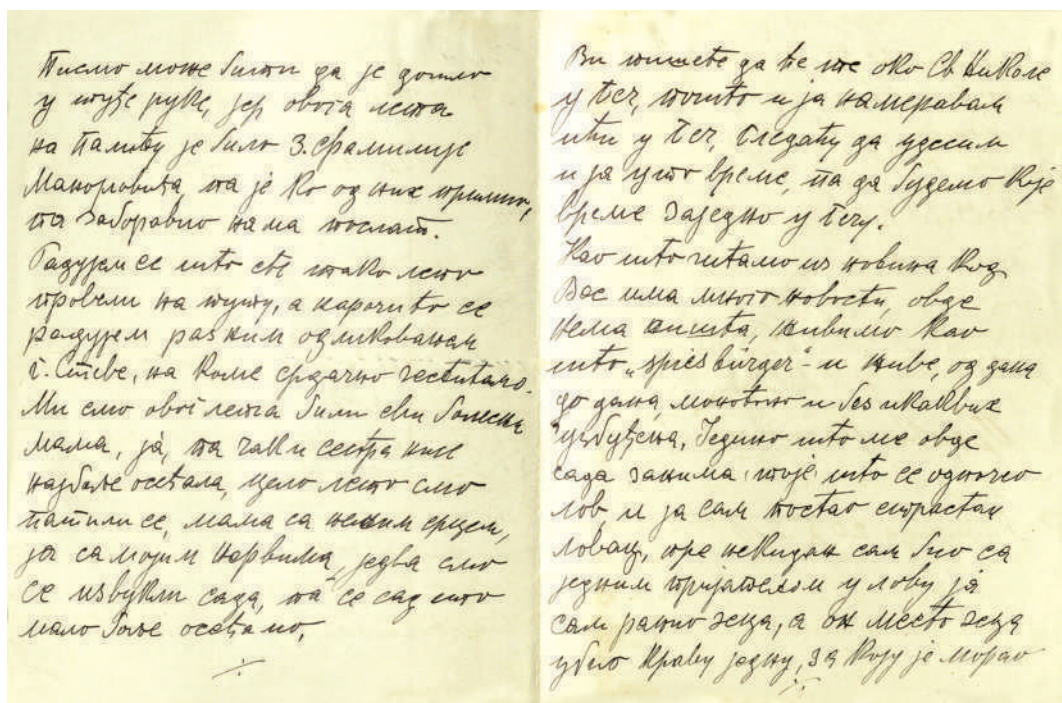 Писмо може бити да је дошло
у туђе руке, јер овога лета
на Палићу је било 3. фамилије
Манојловића, па је ко од њих примио,
па заборавио нама послат.
Радујем се што сте тако лепо
провели на путу, а нарочито се
радујем разним одликовањем
г. Стеве, на коме срдачно честитамо.
Ми смо овог лета били сви болесни
мама, ја, па чак и сестра није
најбоље осећала, цело лето смо
патили се, мама са неним срцем,
ја са мојим нарвима, једва смо
се извукли сада, па се сад што
мало боље осећамо.
Ви пишете да ће те око Св Николе
у Беч, пошто и ја намеравам
ићи у Беч, гледаћу да удесим
и ја у то време, па да будемо које
време заједно у Бечу.
Као што читамо из новина код
Вас има много новости, овде
нема ништа, живимо као
што „spiesbürger“ и живе, од дана
до дана, монотоно и без икаквих
узбуђења, Једино што ме овде
сада занима, то је што се одпочео
лов, и ја сам постао страстан
ловац, пре некидан сам био са
једним пријатељом у лову ја
сам ранио зеца, а он место зеца
убио краву једну, за коју је морао